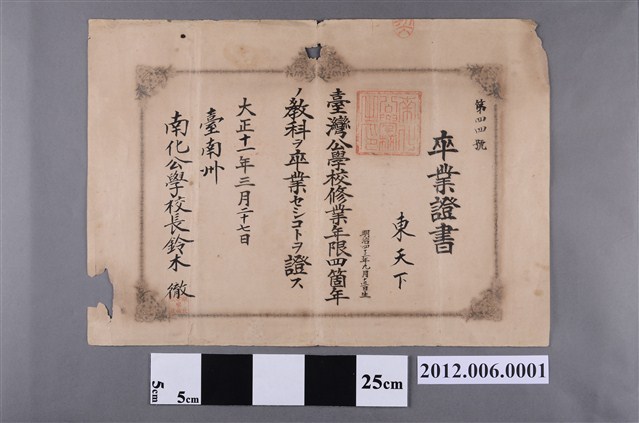 第四四號
卒業證書
東天下
臺灣公學校修業年限四箇年
ノ教科ヲ卒業セシコトヲ證ス
大正十一年三月二十七日
臺南州
南化公學校長鈴木徹
5cm
5cm
25cm
2012.006.0001